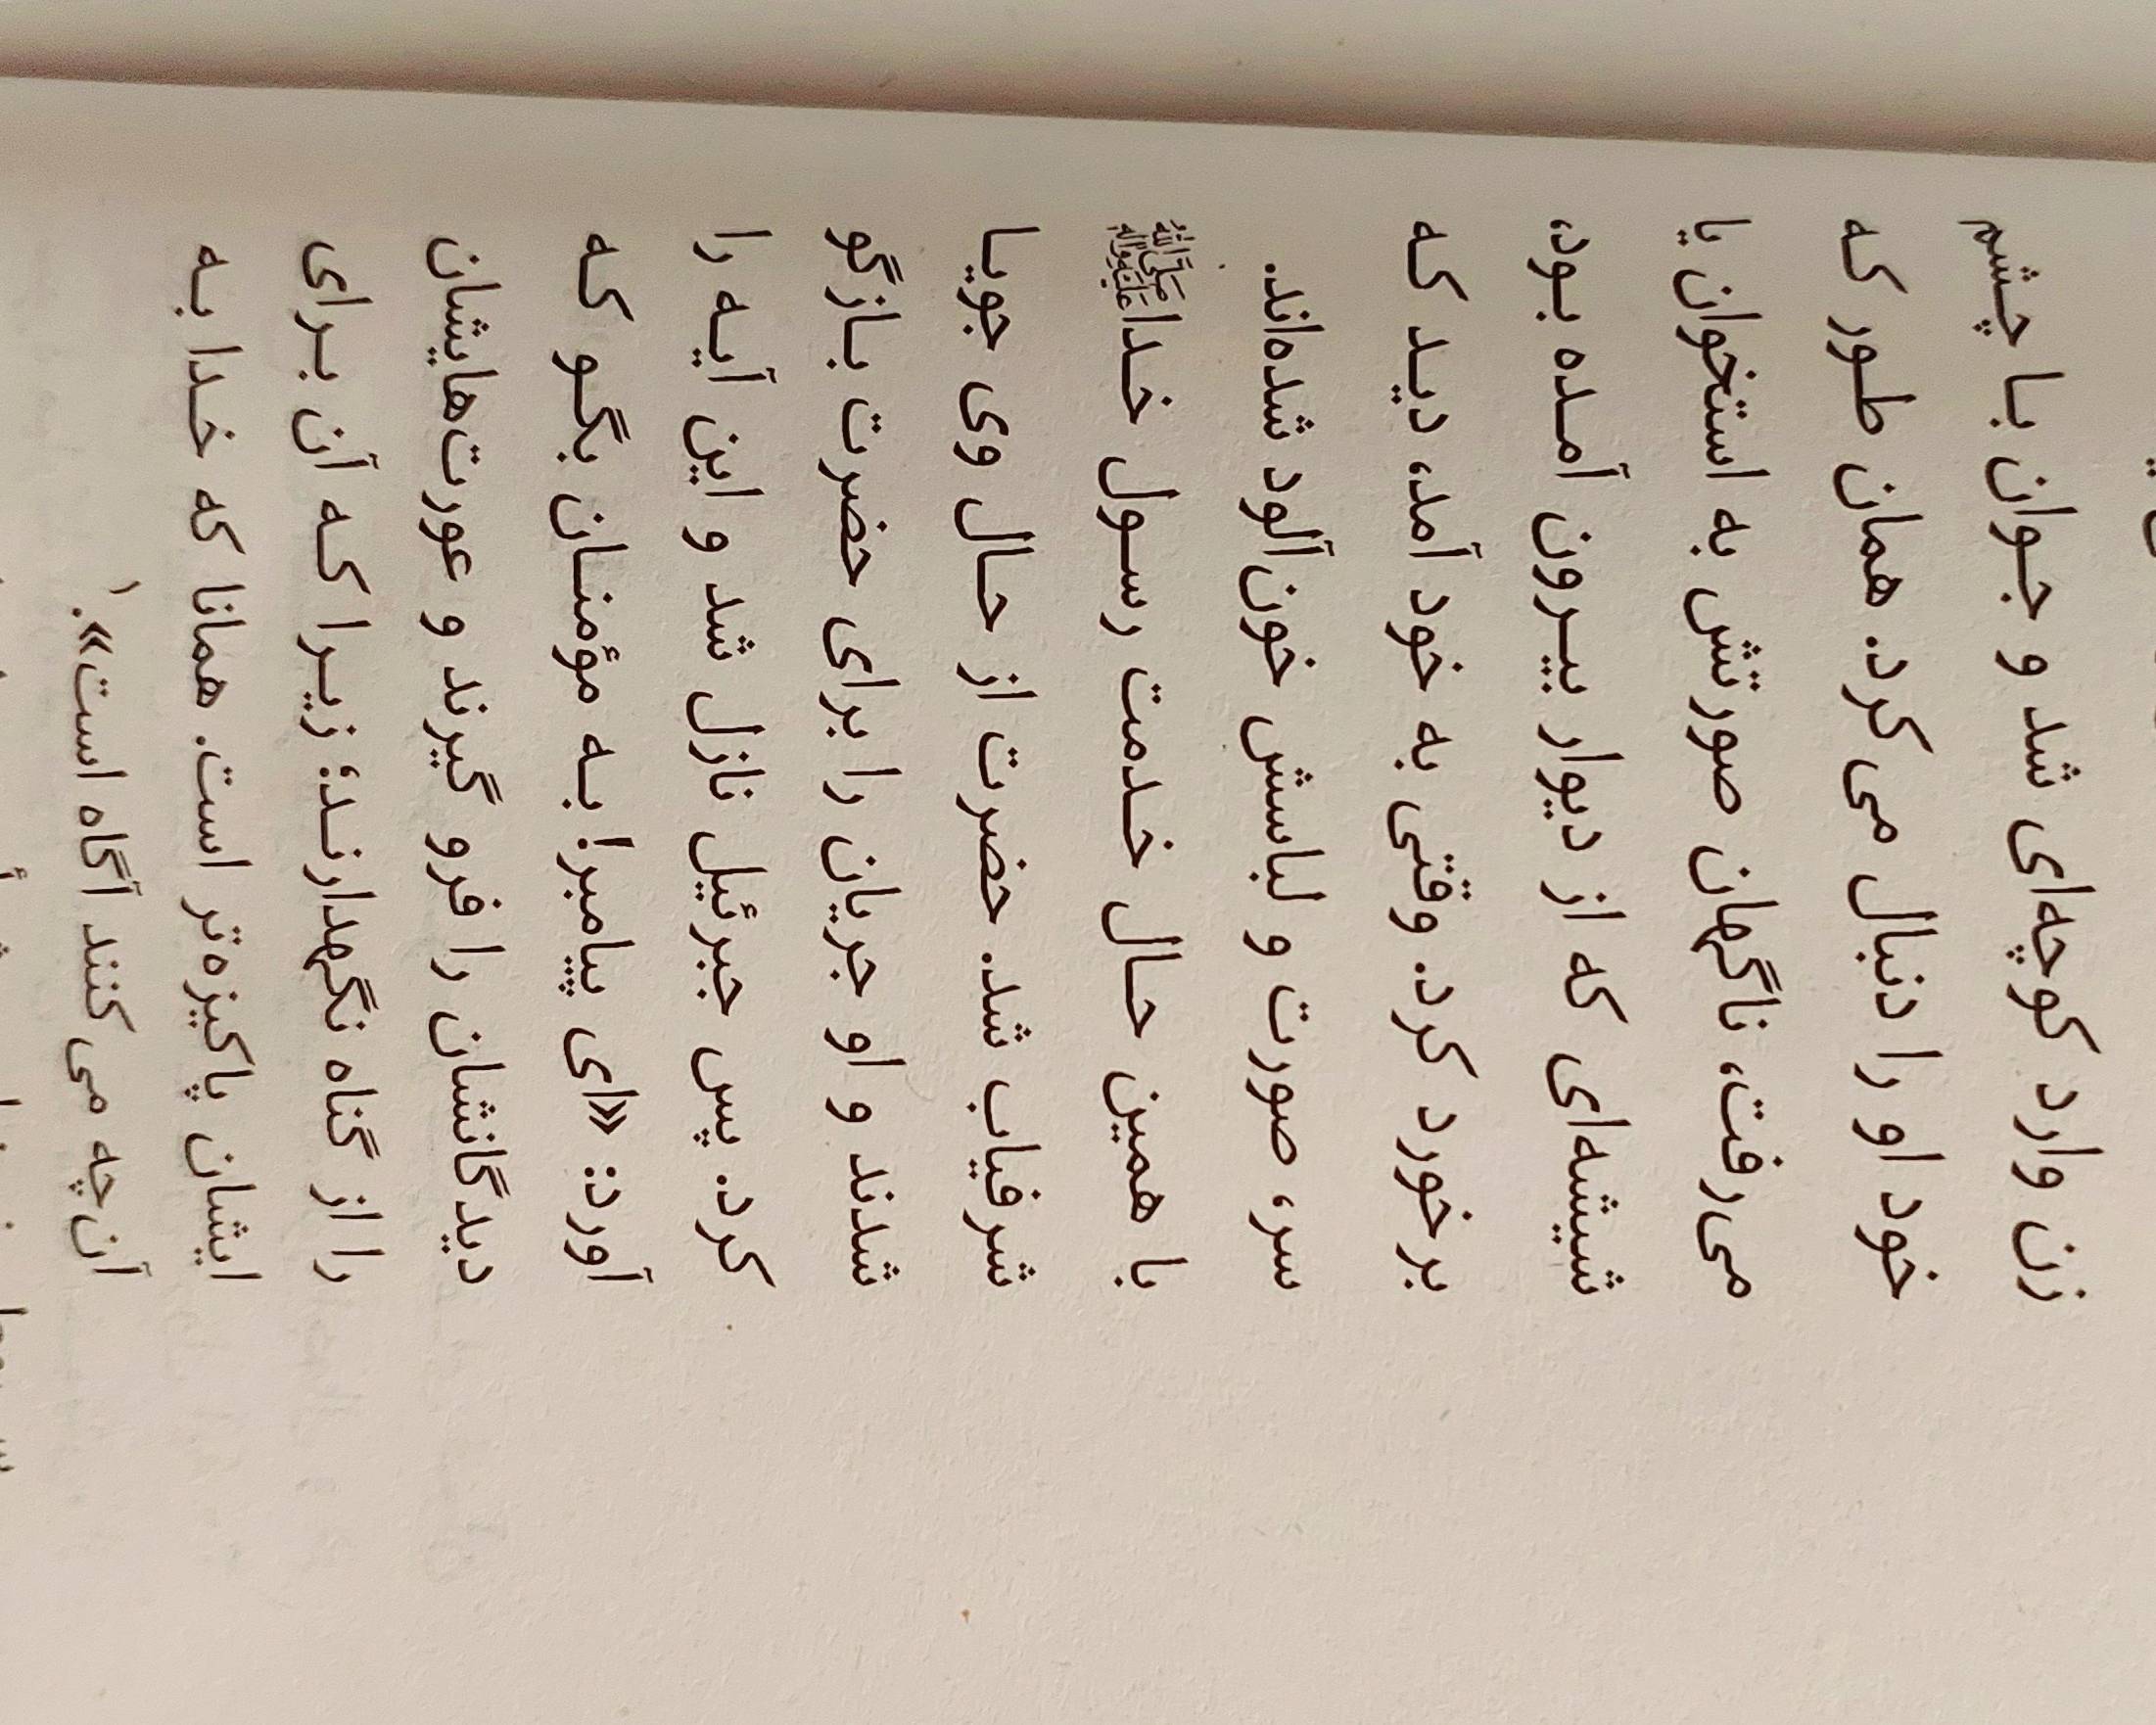 زن وارد کوچه‌ای شد و جوان با چشم
خود او را دنبال می کرد. همان طور که
می‌رفت، ناگهان صورتش به استخوان یا
شیشه‌ای که از دیوار بیرون آمده بود،
برخورد کرد. وقتی به خود آمد، دید که
سر، صورت و لباسش خون‌آلود شده‌اند.
با همین حال خدمت رسول خدا ﷺ
شرفیاب شد. حضرت از حال وی جویا
شدند و او جریان را برای حضرت بازگو
کرد. پس جبرئیل نازل شد و این آیه را
آورد: «ای پیامبر! به مؤمنان بگو که
دیدگانشان را فرو گیرند و عورت‌هایشان
را از گناه نگهدارند؛ زیرا که آن برای
ایشان پاکیزه‌تر است. همانا که خدا به
آن‌چه می کنند آگاه است».۱